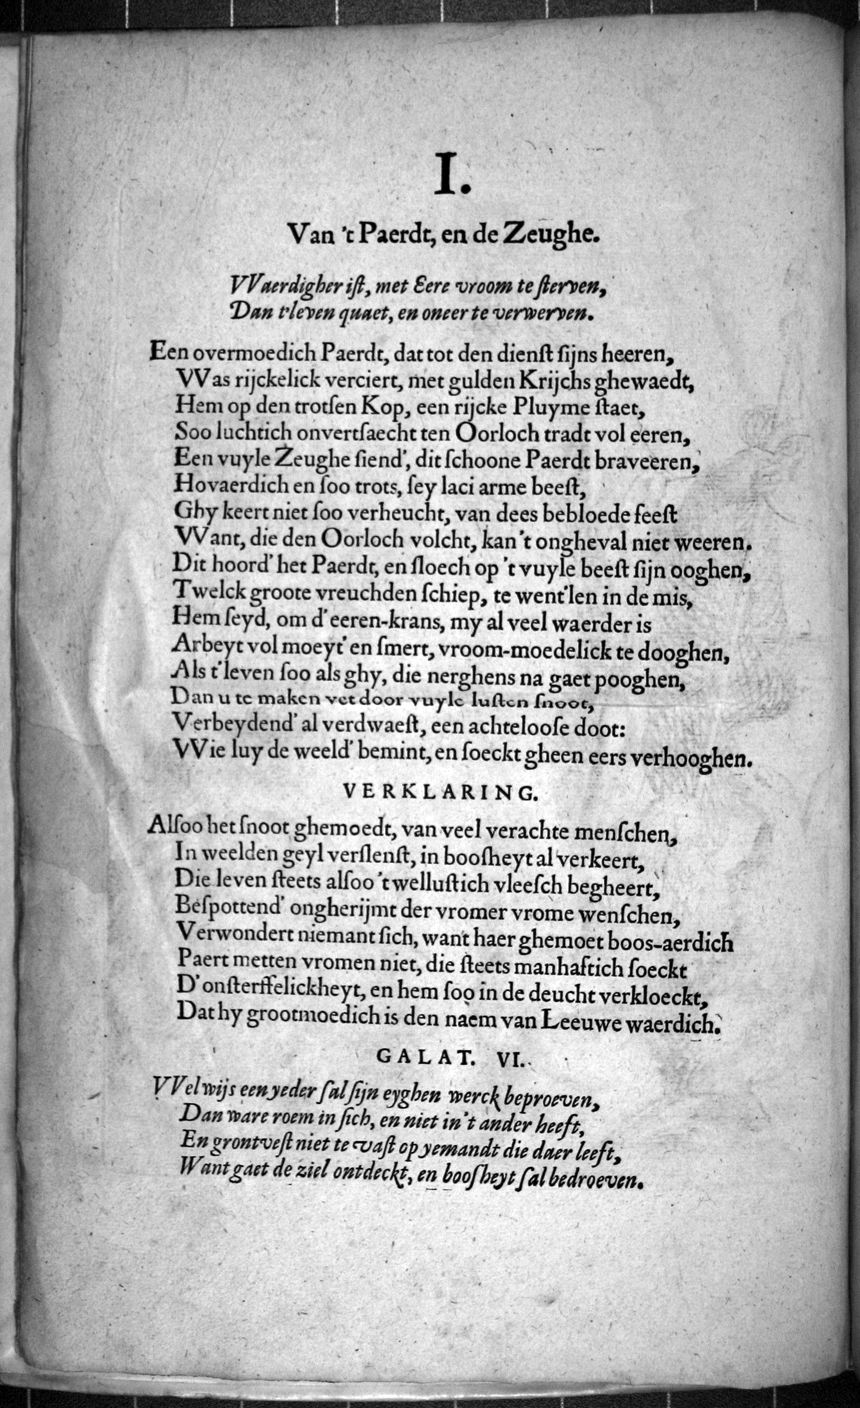 I.
Van 't Paerdt, en de Zeughe.
VVaerdigher ist, met Eere vroom te sterven,
Dan t'leven quaet, en oneer te verwerven.
Een overmoedich Paerdt, dat tot den dienſt ſijns heeren,
VVas rijckelick verciert, met gulden Krijchs ghewaedt,
Hem op den trotſen Kop, een rijcke Pluyme ſtaet,
Soo luchtich onvertſaecht ten Oorloch tradt vol eeren,
Een vuyle Zeughe ſiend', dit ſchoone Paerdt braveeren,
Hovaerdich en ſoo trots, ſey laci arme beeſt,
Ghy keert niet ſoo verheucht, van dees bebloede feeſt
VVant, die den Oorloch volcht, kan 't ongheval niet weeren.
Dit hoord' het Paerdt, en ſloech op 't vuyle beeſt ſijn ooghen,
Twelck groote vreuchden ſchiep, te went'len in de mis,
Hem ſeyd, om d'eeren-krans, my al veel waerder is
Arbeyt vol moeyt' en ſmert, vroom-moedelick te dooghen,
Als t'leven ſoo als ghy, die nerghens na gaet pooghen,
Dan u te maken vet door vuyle luſten ſnoot,
Verbeydend' al verdwaeſt, een achtelooſe doot:
VVie luy de weeld' bemint, en ſoeckt gheen eers verhooghen.
VERKLARING.
Alſoo het ſnoot ghemoedt, van veel verachte menſchen,
In weelden geyl verſlenſt, in booſheyt al verkeert,
Die leven ſteets alſoo 't welluſtich vleeſch begheert,
Beſpottend' ongherijmt der vromer vrome wenſchen,
Verwondert niemant ſich, want haer ghemoet boos-aerdich
Paert metten vromen niet, die ſteets manhaftich ſoeckt
D'onſterffelickheyt, en hem ſoo in de deucht verkloeckt,
Dat hy grootmoedich is den naem van Leeuwe waerdich.
GALAT. VI.
VVel wijs een yeder ſal ſijn eyghen werck beproeven,
Dan ware roem in ſich, en niet in't ander heeft,
En grontveſt niet te vaſt op yemandt die daer leeft,
Want gaet de ziel ontdeckt, en booſheyt ſal bedroeven.